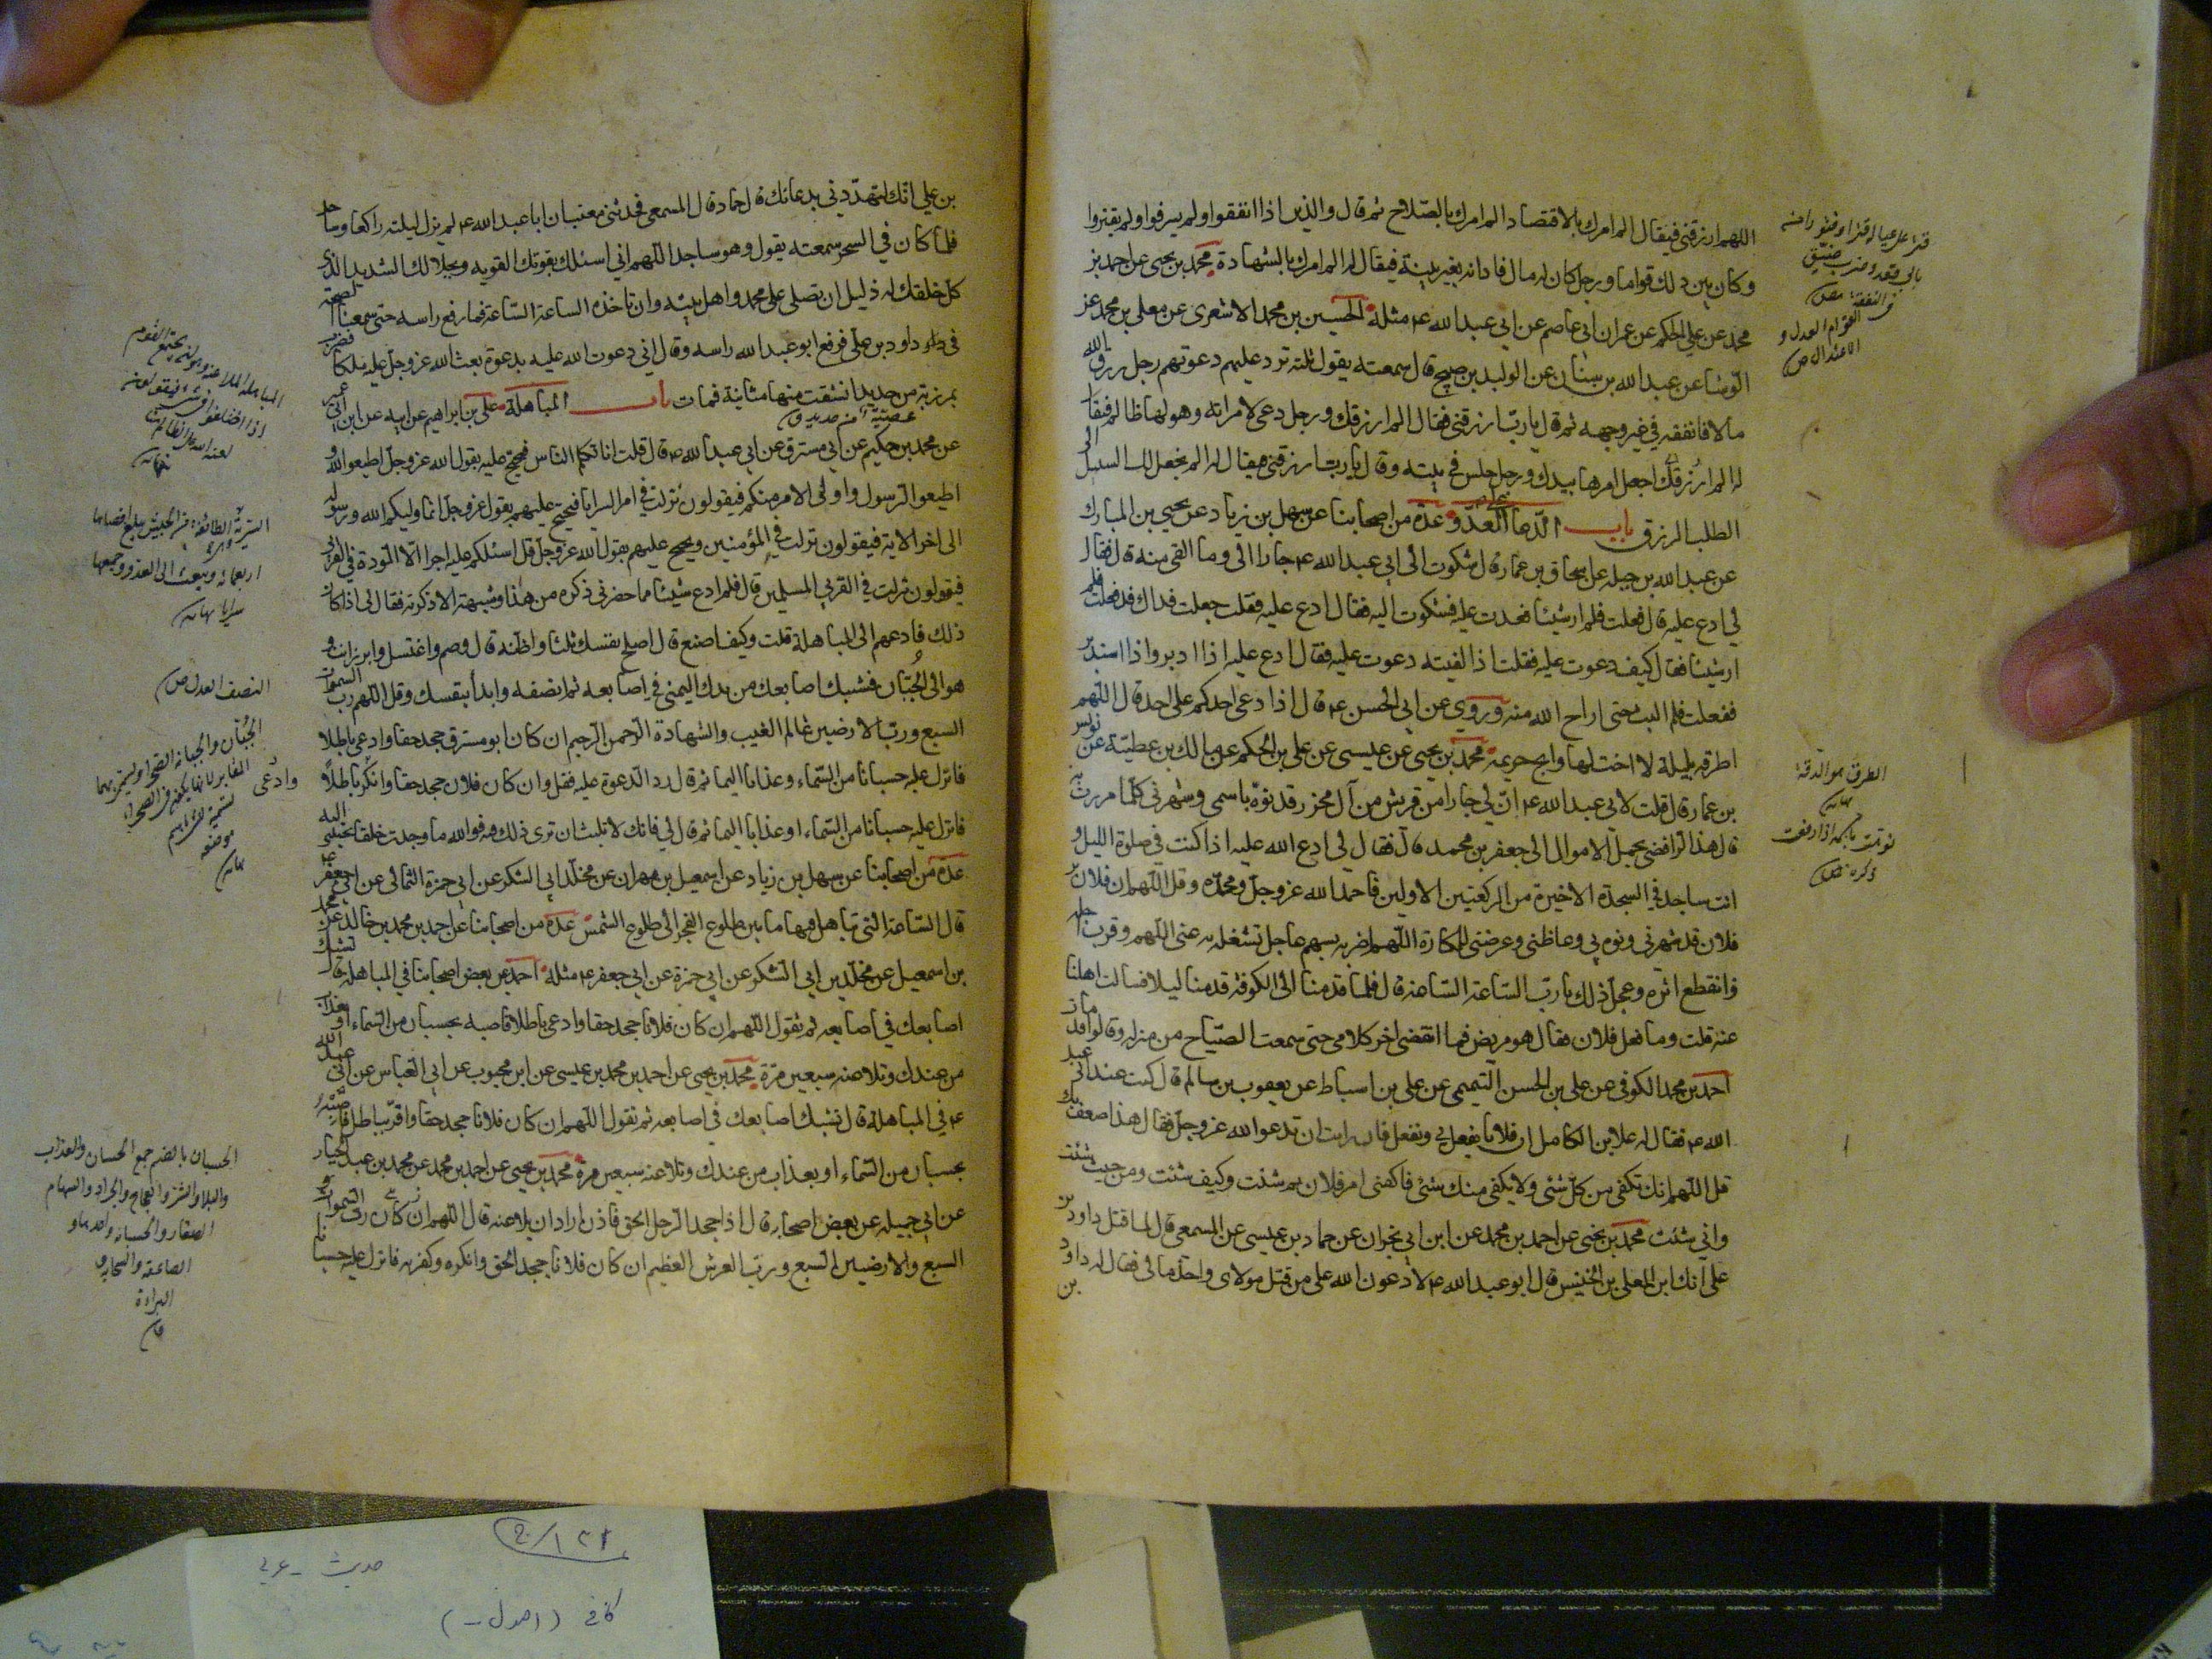 اللهم ارزقنى فيقال الم امرك بالاقتصاد الم امرك بالصّلاح ثم قال والذين اذا انفقوا ولم يسرفوا ولم يقتروا
وكان بين ذلك قواما ورجل كان له مال فادانه بغير بينة فيقال له الم امرك بالشهادة محمد بن يحيى عن احمد بن
محمد عن على الحكم عن عمران ابى عاصم عن ابى عبد الله ع مثله الحسين بن محمد الاشعرى عن معلى بن محمد عن
الوشا عن عبد الله بن سنان عن الوليد بن صبيح قال سمعته يقول ثلثه ترد عليهم دعوتهم رجل رزقه الله
مالا فانفقه في غير وجهه ثم قال يا ربّ ارزقنى فقال الم ارزقك ورجل دعى لامراته وهو لها ظالم فيقال
له الم ارزقك اجعل امرها بيدك ورجل جلس فى بيته وقال يا ربّ ارزقنى فيقال له الم يجعل لك السبيل الى
الطلب الرزق باب الدعا العدو عدّة من اصحابنا عن سهل بن زياد عن يحيى بن المبارك
عن عبد الله بن جبله عن اسحاق بن عمار قال شكوت الى ابى عبد الله ع جارا الى وما القى منه قال فقال
لى ادع عليه قال فعلت فلم ار شيئا فعدت عليه فشكوت اليه فقال ادع عليه فقلت جعلت فداك قد فعلت فلم
ار شيئا فقال كيف دعوت عليه فقلت اذا لقيته دعوت عليه فقال ادع عليه اذا ادبر واذا استدبر
ففعلت فلم البث حتى اراح الله منه وروى عن ابى الحسن ع قال اذا دعى احدكم على احد قال اللهم
اطرقه بليلة لا اخت لها وابح حريمه محمد بن يحيى عن عيسى عن على بن الحكم عن مالك بن عطيّة عن يونس
بن عمار قال قلت لابى عبد الله ع انّ لى جارا من قريش من آل محرز قد نوّه باسمى وشهرنى كلما مررت به
قال هذا الرافضى يحمل الاموال الى جعفر بن محمد قال فقال لى ادع الله عليه اذا كنت فى صلوة الليل و
انت ساجد في السجدة الاخيرة من الركعتين الاولين فاحمد الله عز وجل ومجّده وقل اللهم ان فلان بن
فلان قد شهرنى ونوه بى وغاظنى وعرضنى للمكارة اللهم اضربه بسهم عاجل تشغله به عنى اللهم وقرب اجله
واقطع اثره وعجل ذلك يا ربّ الساعة الساعة قال فلما قدمنا الى الكوفة قدمنا ليلا فسالت اهلنا
عنه قلت وما فعل فلان فقال هو مريض فما انقضى اخر كلامى حتى سمعت الصّياح من منزله وقالوا قد مات
احمد بن محمد الكوفى عن على بن الحسن التيمى عن على بن اسباط عن يعقوب بن سالم قال كنت عند ابى عبد
الله ع فقال له علا بن الكامل ان فلانا يفعل بى ويفعل فان رايت ان تدعوا الله عز وجل فقال هذا ضعف بك
قل اللهم انك تكفى من كلّ شئ ولا يكفى منك شئ فاكفنى امر فلان بم شئت وكيف شئت ومن حيث شئت
وانى شئت محمد بن يحيى عن احمد بن محمد عن ابن ابى نجران عن حماد بن عيسى عن المسمعى قال لما قتل داود بن
على آنك ابن المعلى بن الخنيس قال ابو عبد الله ع لادعون الله على من قتل مولاى واخذ مالى فقال له داود
بن
قتر على عياله
القوام العدل و
الاعتدال ص
الطرق هو الدقة
بن على انّك لتهدّدنى بدعائك قال حماد قال المسمعى فحدثنى معتب ان ابا عبد الله ع لم يزل ليلته راكعا وساجدا
فلما كان في السحر سمعته يقول وهو ساجد اللهم انى اسئلك بقوتك القويه وبجلالك الشديد الذى
كل خلقك له ذليل ان تصلى على محمد واهل بيته وان تاخذه الساعة الساعة فما رفع راسه حتى سمعنا الصيحة
فى دار داود بن على فرفع ابو عبد الله راسه وقال انى دعوت الله عليه بدعوة بعث الله عز وجل عليه ملكا فضرب
بمرزبة من حديد انشقت منها مثانيه فمات باب المباهلة على بن ابراهيم عن ابيه عن ابن ابى عمير
عن محمد بن حكيم عن ابى مسترق عن ابى عبد الله ع قال قلت انا نكلم الناس فنحتج عليهم بقول الله عز وجل اطيعوا الله و
اطيعوا الرسول واولى الامر منكم فيقولون نزلت فى امر السرايا فنحتج عليهم بقول عز وجل انما وليكم الله ورسوله
الى اخر الاية فيقولون نزلت فى المؤمنين ونحتج عليهم بقول الله عز وجل قل لا اسئلكم عليه اجرا الا المودة في القربى
فيقولون نزلت في القربى المسلمين قال فلم ادع شيئا مما حضرنى ذكره من هذا وشبهه الا ذكرته فقال لى اذا كان
ذلك فادعهم الى المباهلة قلت وكيف اصنع قال اصلح نفسك ثلثا واظنه قال وصم واغتسل وابرز انت و
هو الى الجُبّان فشبك اصابعك من يدك اليمنى فى اصابعه ثم انصفه وابدأ بنفسك وقل اللهم رب السموات
السبع ورب الارضين عالم الغيب والشهادة الرحمن الرحيم ان كان ابو مسترق جحد حقا وادعى باطلا
فانزل عليه حسبانا من السماء وعذابا اليما ثم قال رد الدعوة عليه فقل وان كان فلان جحد حقا وانكر باطلا
فانزل عليه حسبانا من السماء او عذابا اليما ثم قال لى فانك لا تلبث ان ترى ذلك فيه فوالله ما وجدت خلقا يجيبنى اليه
عدة من اصحابنا عن سهل بن زياد عن اسمعيل بن مهران عن مخلد ابى الشكر عن ابى حمزة الثمالى عن ابى جعفر ع
قال الساعة التى تباهل فيها ما بين طلوع الفجر الى طلوع الشمس عدة من اصحابنا عن احمد بن محمد بن خالد عن محمد
بن اسمعيل عن مخلد بن ابى الشكر عن ابى حمزة عن ابى جعفر ع مثله احمد عن بعض اصحابنا في المباهلة قال تشبك
اصابعك فى اصابعه ثم تقول اللهم ان كان فلانا جحد حقا وادعى باطلا فاصبه بحسبان من السماء او بعذاب
من عندك وتلاعنه سبعين مرّة محمد بن يحيى عن احمد بن محمد بن عيسى عن ابن محبوب عن ابى العباس عن ابى عبد الله
ع فى المباهلة قال تشبك اصابعك فى اصابعه ثم تقول اللهم ان كان فلانا جحد حقا واقرّ بباطل فاصبه
بحسبان من السماء او بعذاب من عندك وتلاعنه سبعين مرة محمد بن يحيى عن احمد بن محمد عن محمد بن عبد الحميد
عن ابى جميله عن بعض اصحابه قال اذا جحد الرجل الحق فاذن اراد ان يلاعنه قال اللهم ان كان رب السموات
السبع والارضين السبع ورب العرش العظيم ان كان فلانا جحد الحق وانكره وكفر به فانزل عليه حسبانا
النصف العدل ص
الحسبان بالضم جمع الحساب والعذاب
والبلا والشر والعجاج والجراد والسهام
الصغار
الصاعقه والسحابه
البرادة
١٢١/ج
حديث - عربى
كافى (اصول -)